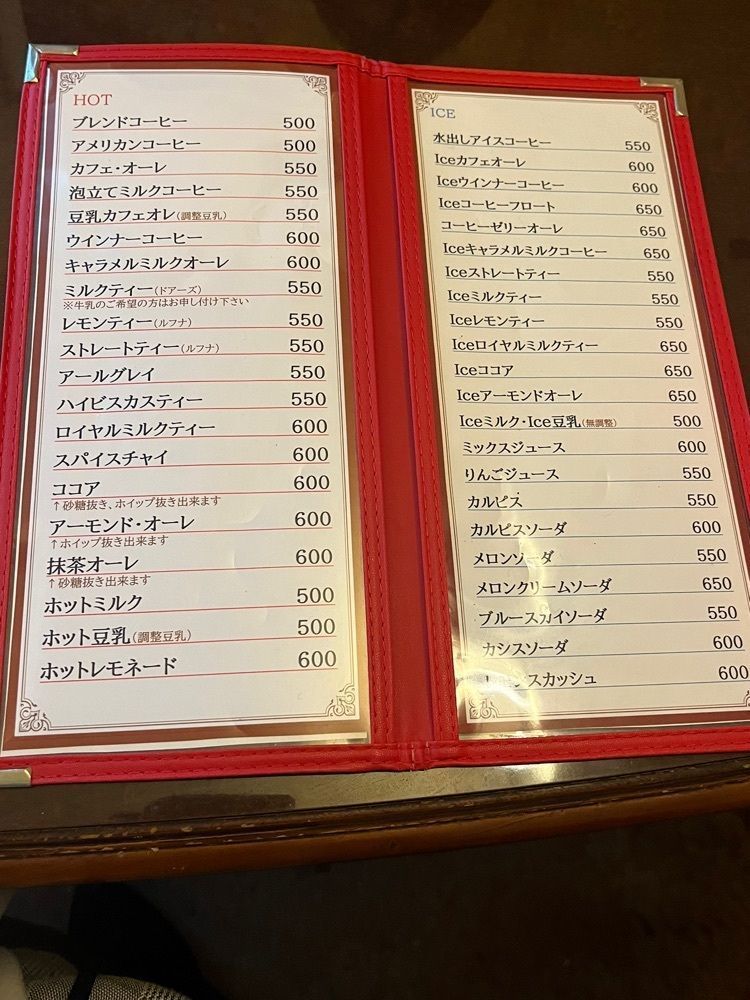 HOT
ブレンドコーヒー 500
アメリカンコーヒー 500
カフェ・オーレ 550
泡立てミルクコーヒー 550
豆乳カフェオレ(調整豆乳) 550
ウインナーコーヒー 600
キャラメルミルクオーレ 600
ミルクティー(ドアーズ) 550
※牛乳のご希望の方はお申し付け下さい
レモンティー(ルフナ) 550
ストレートティー(ルフナ) 550
アールグレイ 550
ハイビスカスティー 550
ロイヤルミルクティー 600
スパイスチャイ 600
ココア 600
↑砂糖抜き、ホイップ抜き出来ます
アーモンド・オーレ 600
↑ホイップ抜き出来ます
抹茶オーレ 600
↑砂糖抜き出来ます
ホットミルク 500
ホット豆乳(調整豆乳) 500
ホットレモネード 600
ICE
水出しアイスコーヒー 550
Iceカフェオーレ 600
Iceウインナーコーヒー 600
Iceコーヒーフロート 650
コーヒーゼリーオーレ 650
Iceキャラメルミルクコーヒー 650
Iceストレートティー 550
Iceミルクティー 550
Iceレモンティー 550
Iceロイヤルミルクティー 650
Iceココア 650
Iceアーモンドオーレ 650
Iceミルク・Ice豆乳(無調整) 500
ミックスジュース 600
りんごジュース 550
カルピス 550
カルピスソーダ 600
メロンソーダ 550
メロンクリームソーダ 650
ブルースカイソーダ 550
カシスソーダ 600
スカッシュ 600